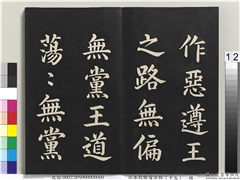 作惡遵王
之路無偏
無黨王道
蕩〻無黨
12